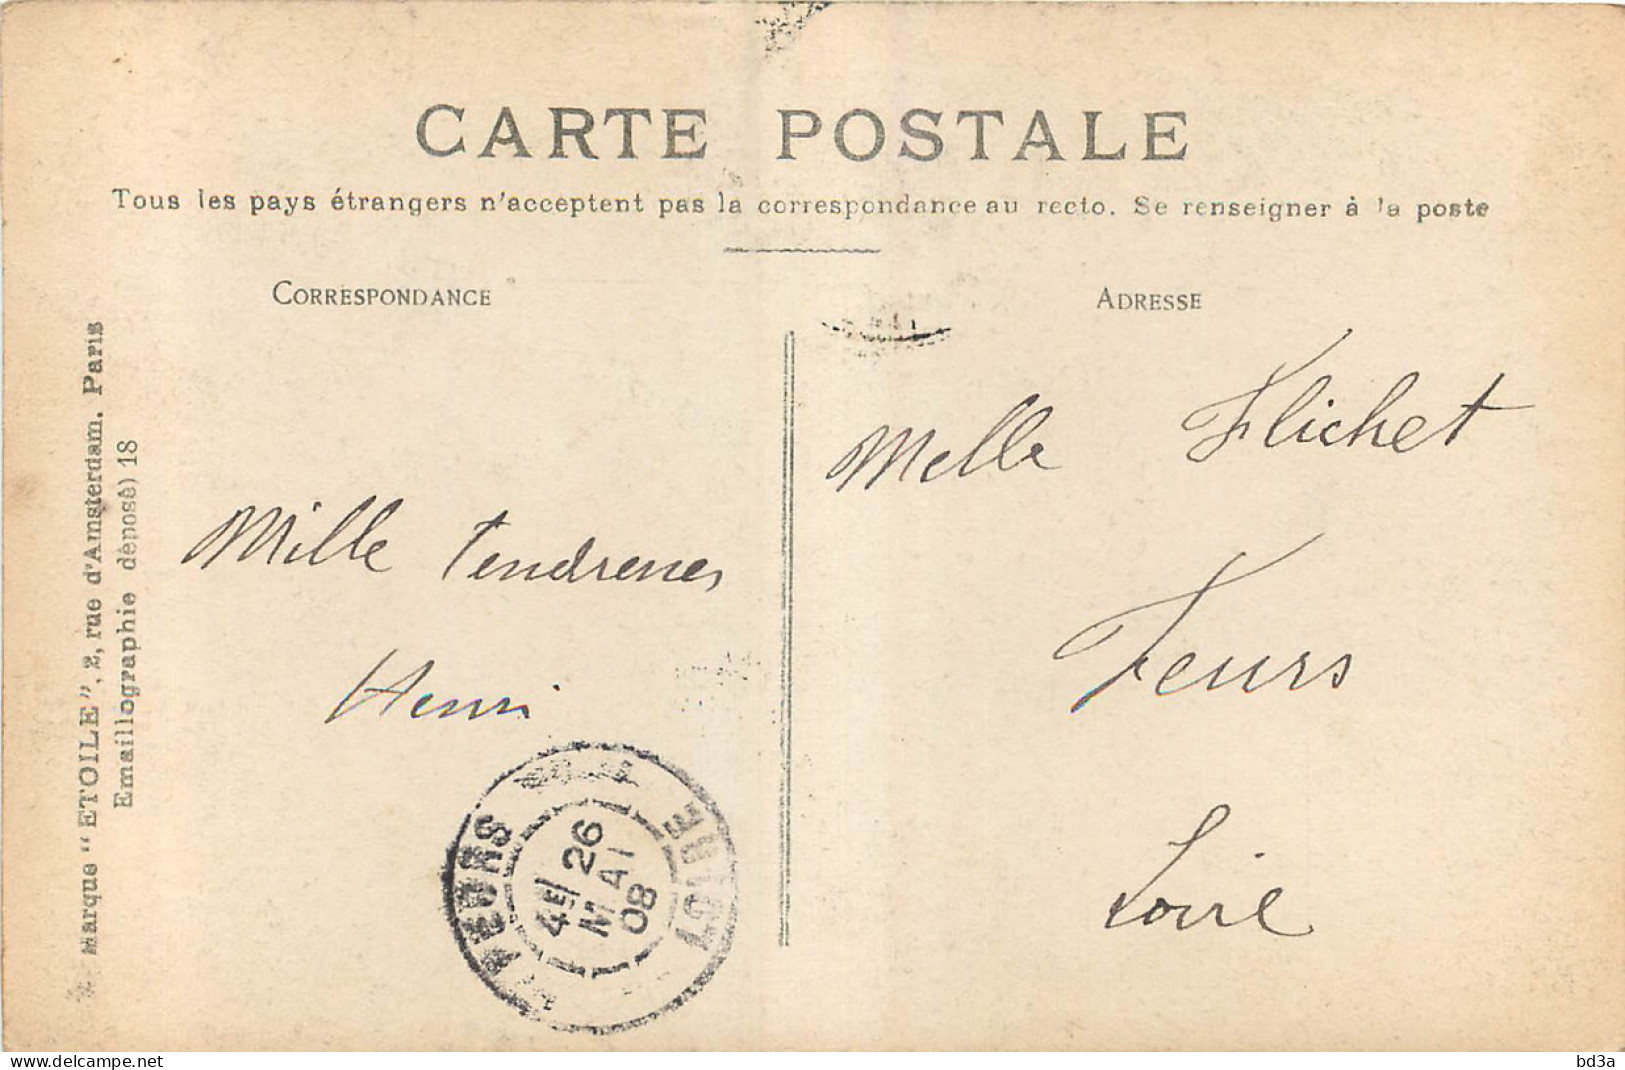 CARTE POSTALE
Tous les pays étrangers n'acceptent pas la correspondance au recto. Se renseigner à la poste
CORRESPONDANCE
ADRESSE
Marque "ETOILE", 2, rue d'Amsterdam. Paris
Emaillographie déposé) 18
Mille tendresses
Henri
Melle Flichet
Feurs
Loire
FEURS
4E
26
MAI
08
LOIRE
www.delcampe.net
bd3a